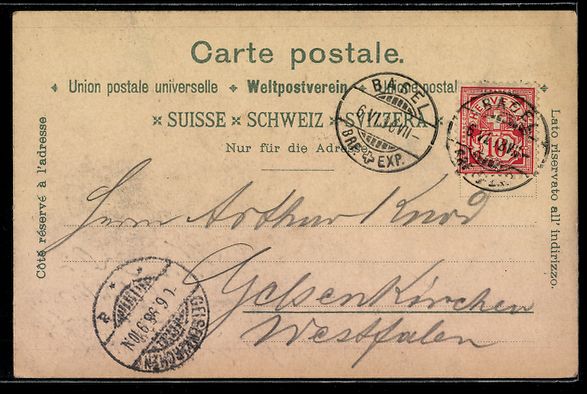 Carte postale.
Union postale universelle ✤ Weltpostverein ✤ Unione postale
SUISSE ✕ SCHWEIZ ✕ SVIZZERA
Nur für die Adresse
Côté réservé à l'adresse
Lato riservato all' indirizzo.
BASEL
BRF. EXP.
HELVETIA
10
BASEL
Herrn Arthur Knod
Gelsenkirchen
Westfalen
GELSENKIRCHEN